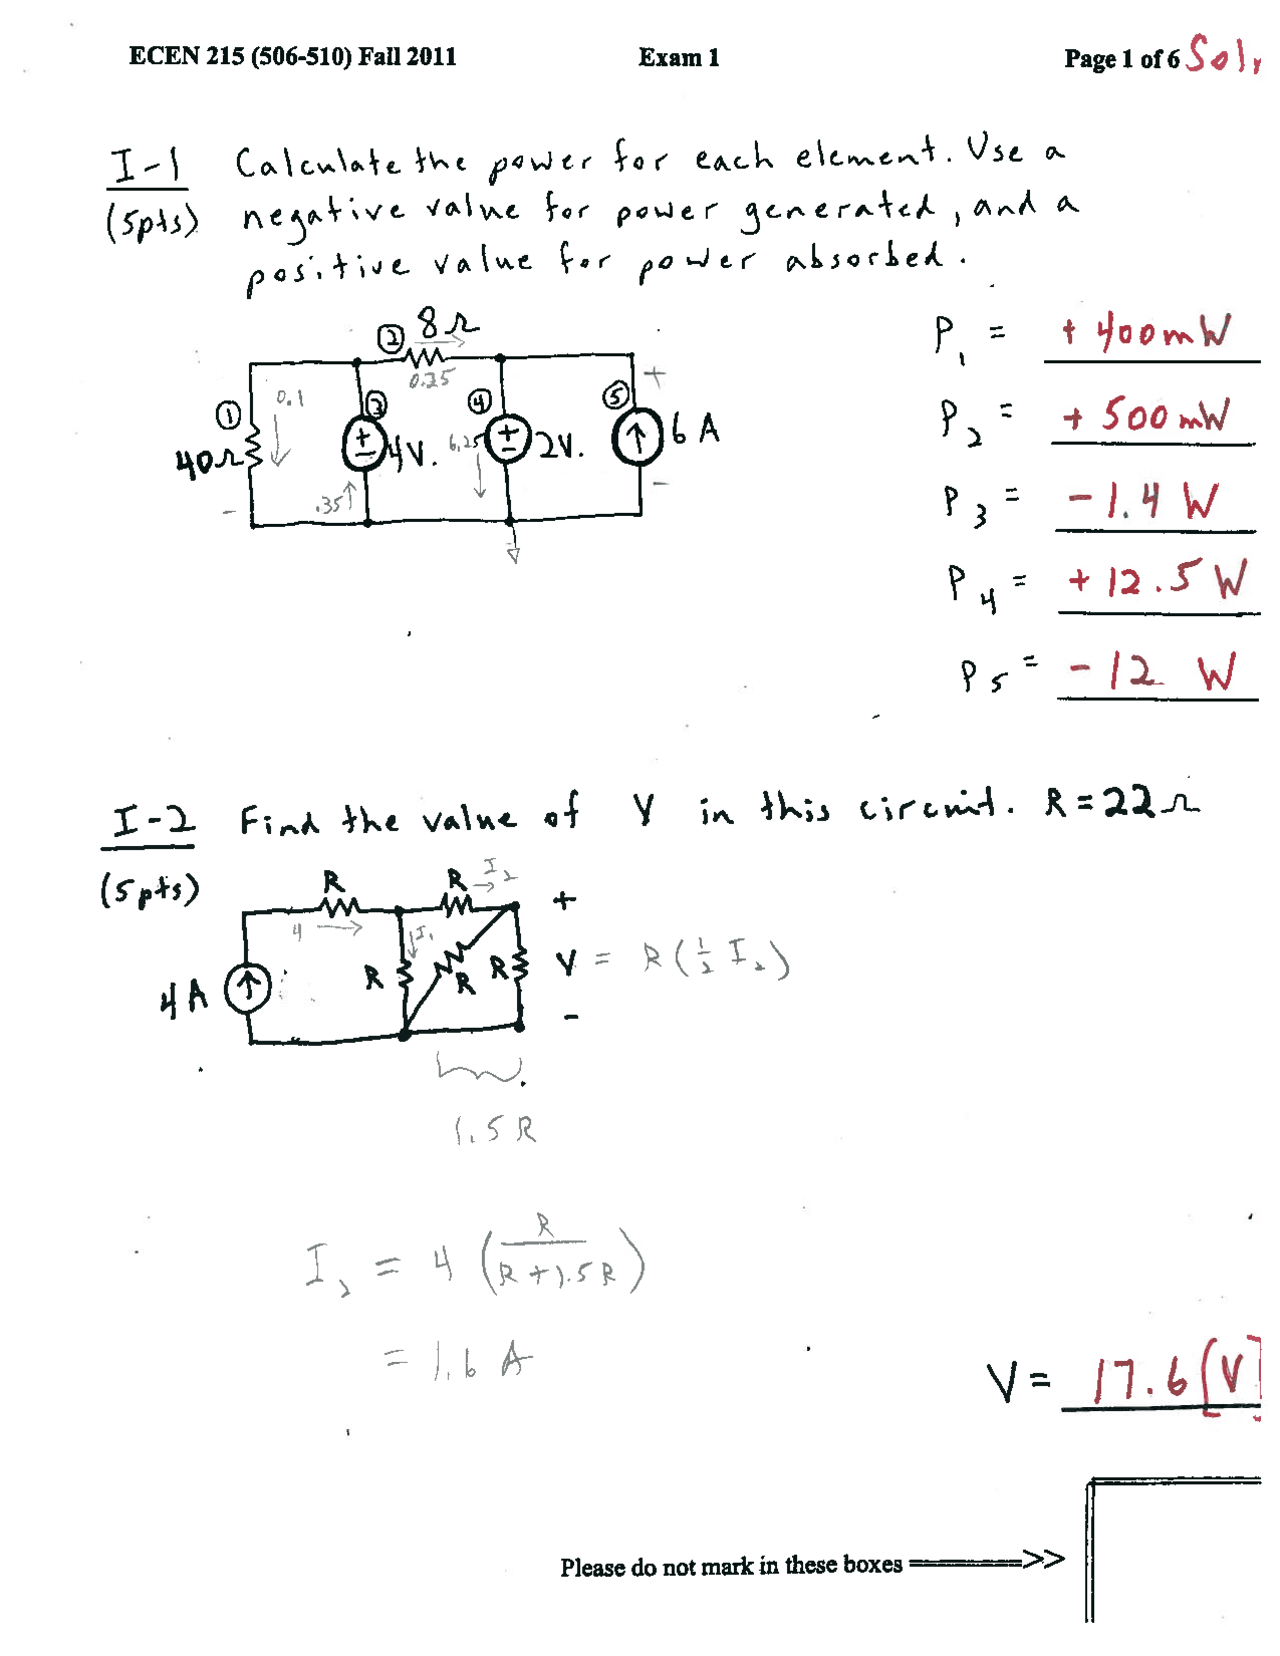 ECEN 215 (506-510) Fall 2011 Exam 1 Page 1 of 6 Soln
I-1 Calculate the power for each element. Use a
(5pts) negative value for power generated, and a
positive value for power absorbed.
② 8Ω
0.25
① 40Ω
0.1
-
③ 4V.
.35
④ 2V.
6.25
⑤ 6 A
+
-
P1 = + 400mW
P2 = + 500mW
P3 = - 1.4 W
P4 = + 12.5 W
P5 = - 12 W
I-2 Find the value of V in this circuit. R = 22Ω
(5pts)
R R I2
4 I1 +
4A R R R V = R(½ I2)
-
1.5 R
I2 = 4 (R/(R + 1.5R))
= 1.6 A
V = 17.6 [V]
Please do not mark in these boxes ═════>>